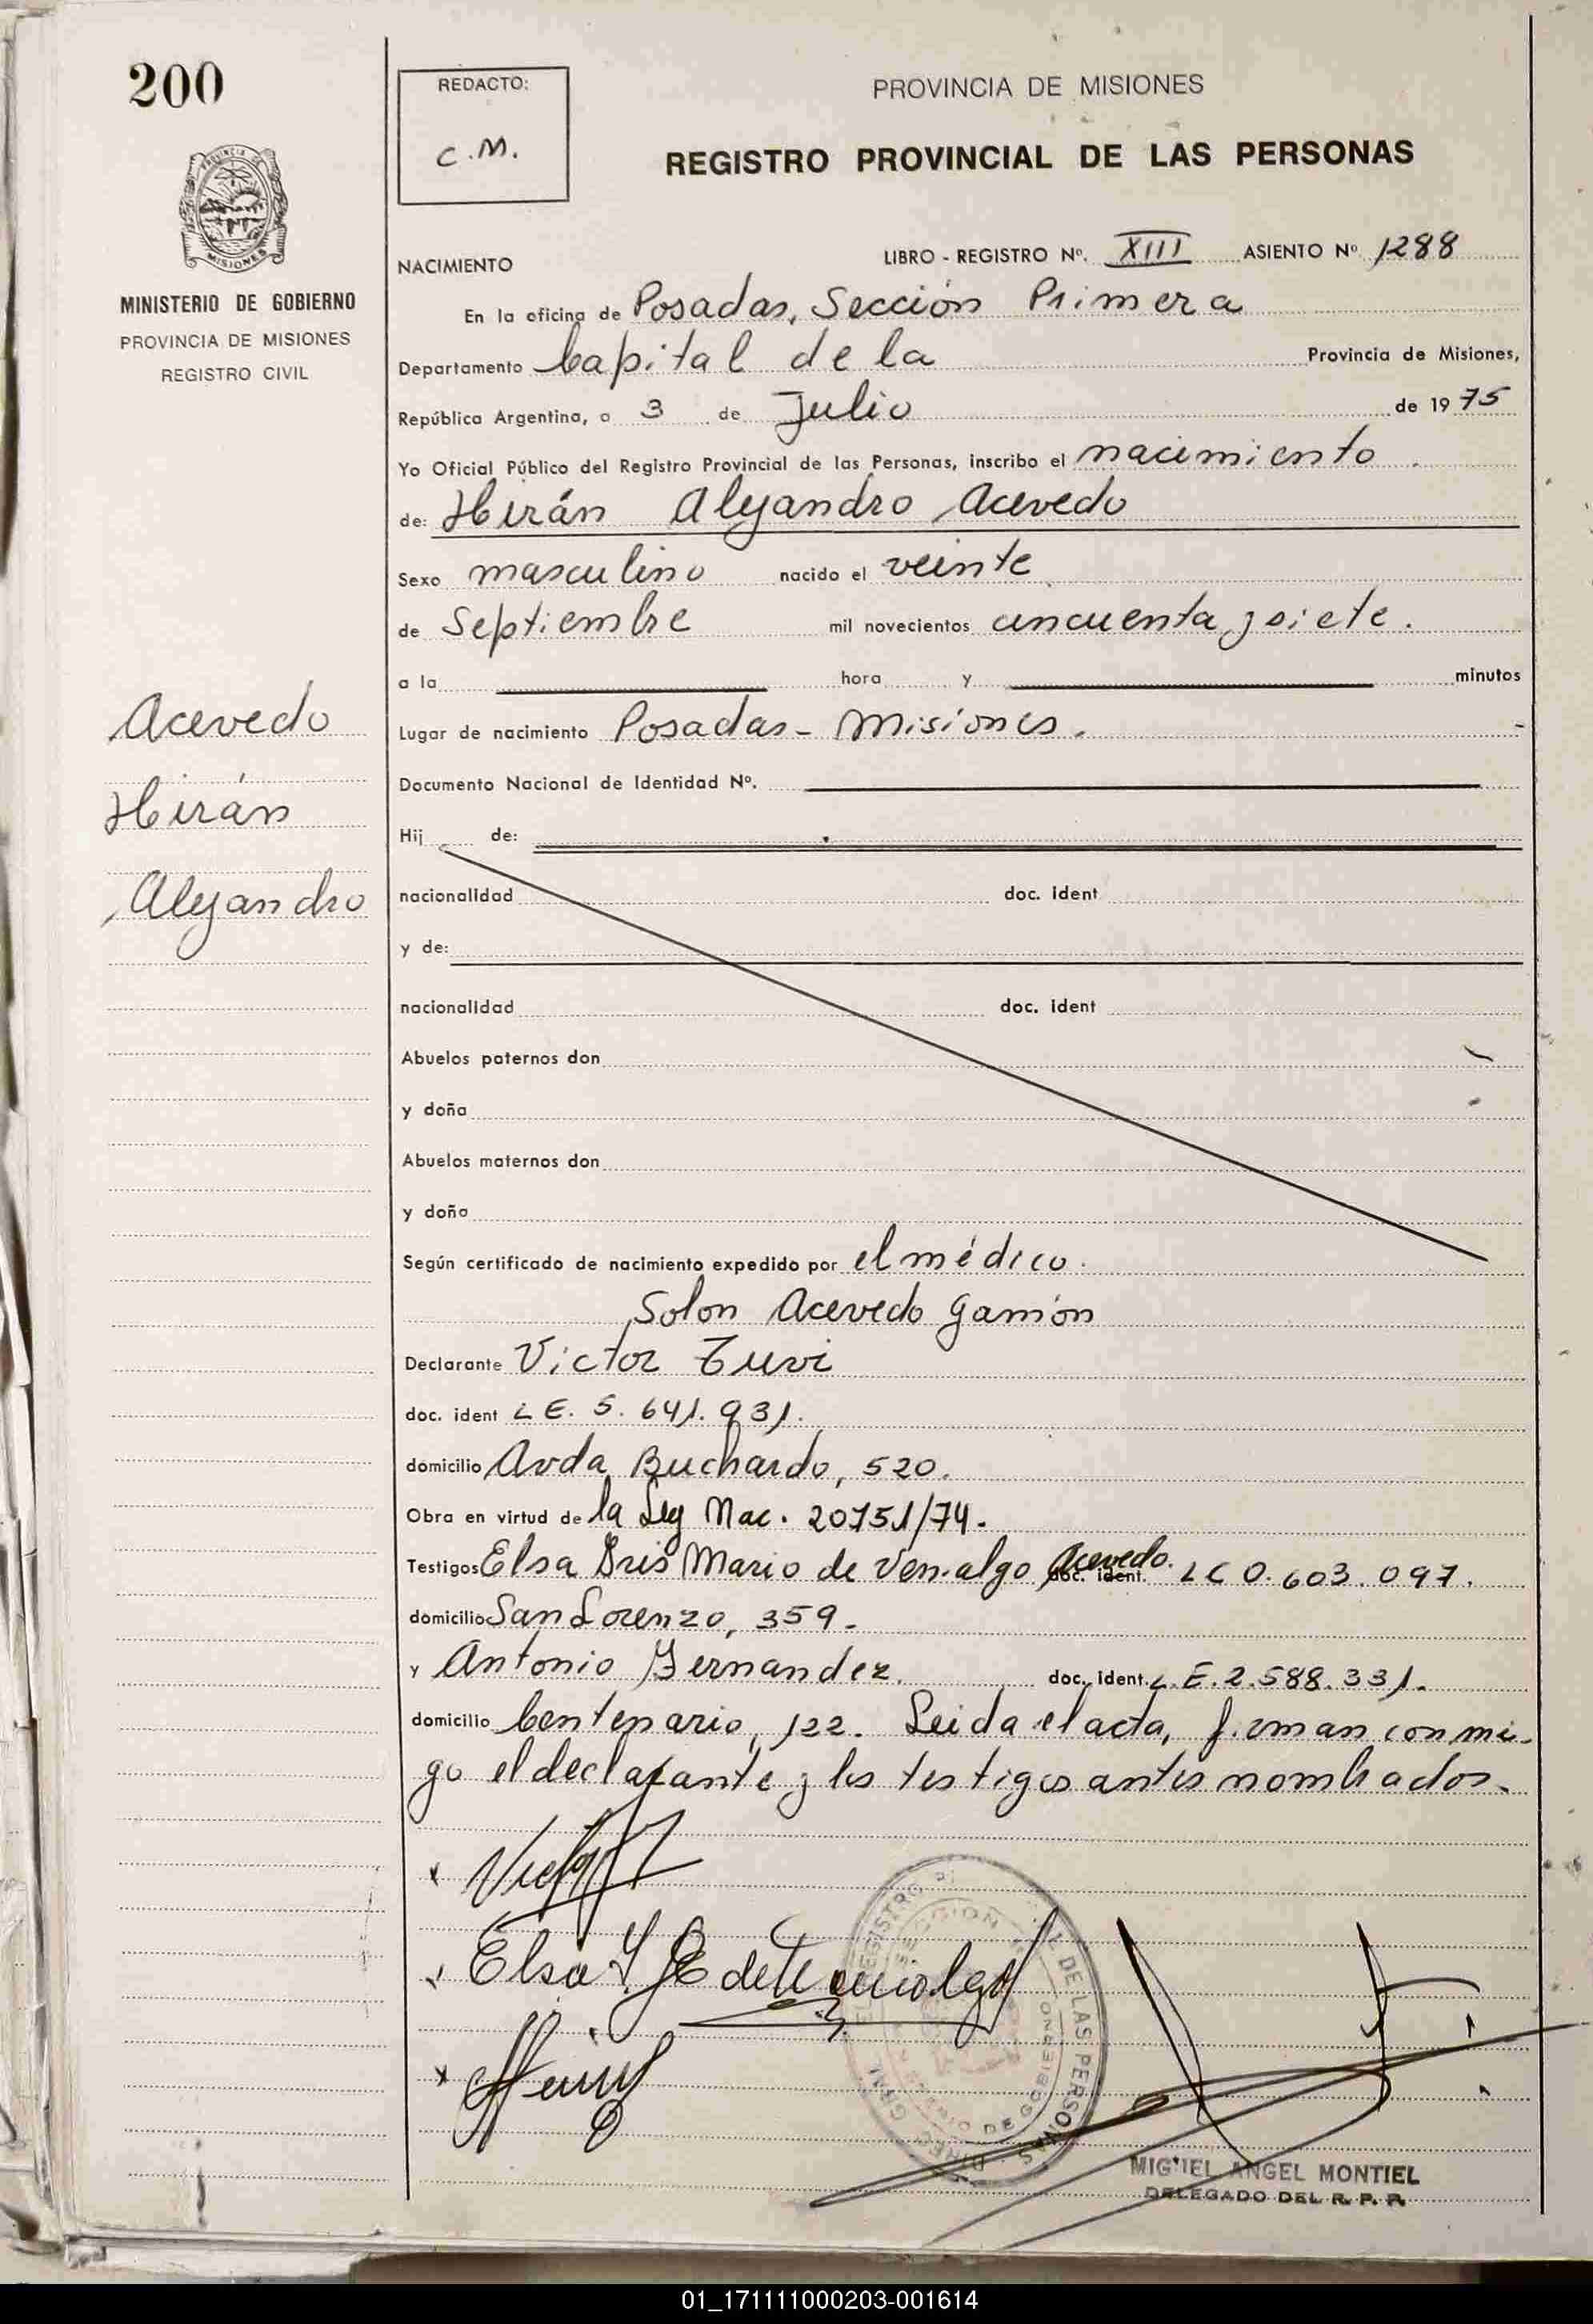 200
REDACTO:
C.M.
PROVINCIA DE MISIONES
REGISTRO PROVINCIAL DE LAS PERSONAS
MISIONES
MINISTERIO DE GOBIERNO
PROVINCIA DE MISIONES
REGISTRO CIVIL
NACIMIENTO
LIBRO - REGISTRO Nº. XIII ASIENTO Nº 1288
En la oficina de Posadas, Sección Primera
Departamento Capital de la Provincia de Misiones,
República Argentina, a 3 de Julio de 1975
Yo Oficial Público del Registro Provincial de las Personas, inscribo el nacimiento
de: Hirán Alejandro Acevedo
Sexo masculino nacido el veinte
de Septiembre mil novecientos cincuenta y siete.
a la hora y minutos
Acevedo
Hirán
Alejandro
Lugar de nacimiento Posadas - Misiones.
Documento Nacional de Identidad Nº.
Hij de:
nacionalidad doc. ident
y de:
nacionalidad doc. ident
Abuelos paternos don
y doña
Abuelos maternos don
y doña
Según certificado de nacimiento expedido por el médico.
Solon Acevedo
Declarante Victor
doc. ident L E. 5. 641. 931.
domicilio Avda Buchardo, 520.
Obra en virtud de la Ley Nac. 20751/74.
Testigos Elsa de Venialgo Acevedo. doc. ident. L C 0. 603. 097.
domicilio San Lorenzo, 359.
y Antonio Fernandez. doc. ident. L. E. 2. 588. 331.
domicilio Centenario, 122. Leida el acta, firman conmi-
go el declarante y los testigos antes nombrados.
DE LAS PERSONAS
MIGUEL ANGEL MONTIEL
DELEGADO DEL R. P. P.
01_171111000203-001614